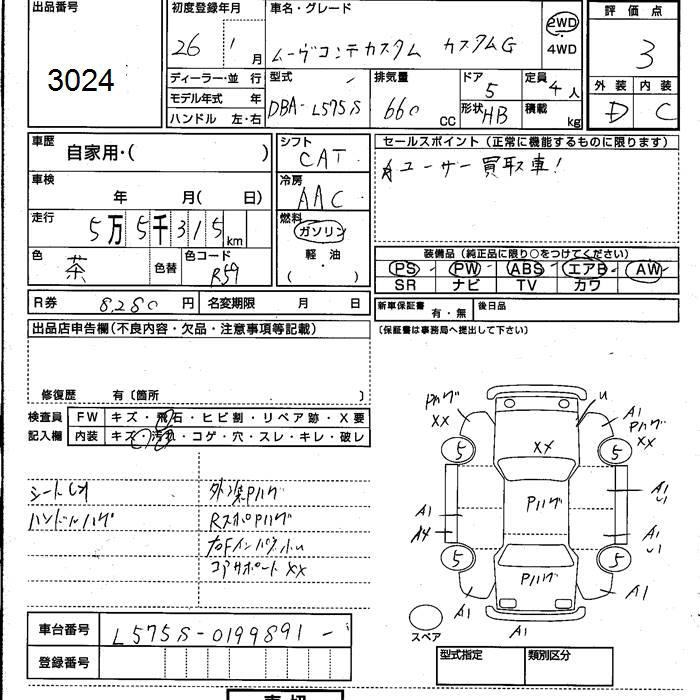 出品番号
3024
初度登録年月
26 1 月
車名・グレード
ムーヴコンテカスタム カスタムG
2WD
4WD
評価点
3
外装 内装
D C
ディーラー・並 行
モデル年式 年
ハンドル 左・右
型式
DBA-L575S
排気量
660 cc
ドア
5
形状 HB
定員
4人
積載 kg
車歴
自家用・( )
車検
年 月( 日)
走行
5万5千315km
色
茶
色替
色コード
R59
シフト
CAT
冷房
AAC
燃料
ガソリン
軽油
( ・ )
セールスポイント(正常に機能するものに限ります)
ユーザー買取車!
装備品(純正品に限り○をつけてください)
PS PW ABS エアB AW
SR ナビ TV カワ
R券 8,280 円
名変期限 月 日
新車保証書
有・無
後日品
(保証書は事務局へ提出して下さい)
出品店申告欄(不良内容・欠品・注意事項等記載)
修復歴 有〔箇所 〕
検査員
記入欄
FW キズ・飛石・ヒビ割・リペア跡・X要
内装 キズ・汚れ・コゲ・穴・スレ・キレ・破レ
ハンドルハゲ
外装Pハゲ
RスポPハゲ
コアサポートXX
Pハゲ
XX
U
A1
Pハゲ
XX
5
XX
5
A1
A4
Pハゲ
A1
U1
A1
U1
5
5
Pハゲ
A1
A1
A1
スペア
車台番号
L575S-0199891-
登録番号
型式指定
類別区分